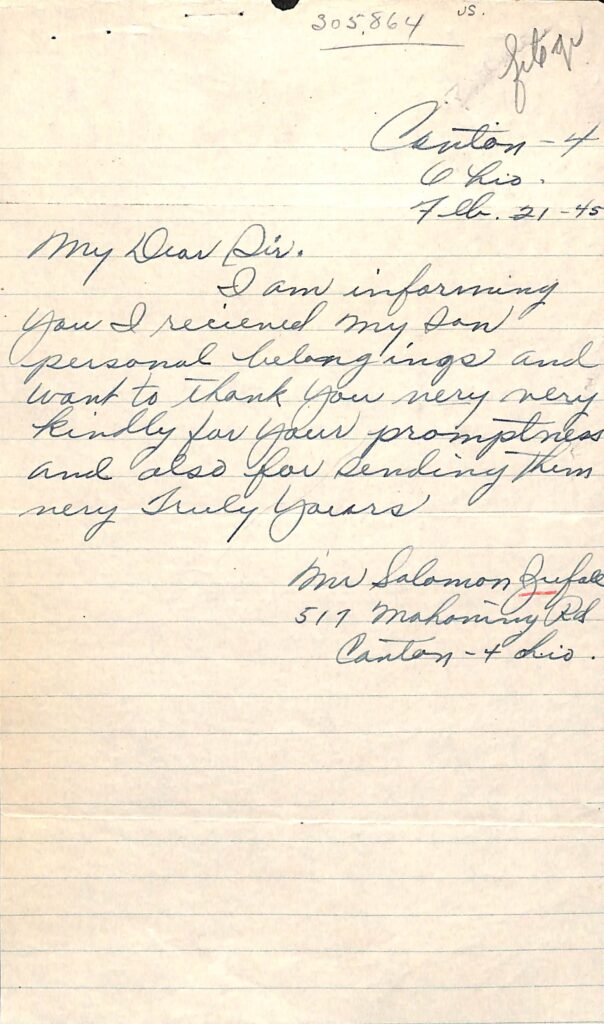 305,864 US.
Canton - 4
Ohio.
Feb. 21 - 45
My Dear Sir.
I am informing
you I recieved my son
personal belongings and
want to thank you very very
kindly for your promptness
and also for sending them
very Truly Yours
Mr Solomon Zufall
517 Mahoning Rd
Canton - 4 Ohio.